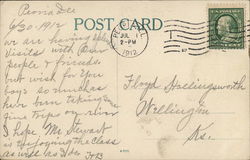 Peoria Ills
6/30 - 1912
POST CARD
PEORIA, ILL.
JUL 1
2-PM
1912
we are having
visits with
people & friends
but wish for you
boys so much as
have been taking
fine trips on river
I hope Mr Stewart
is enjoying the class
as well as I do
Floyd Hollingsworth
Wellington
Ks.